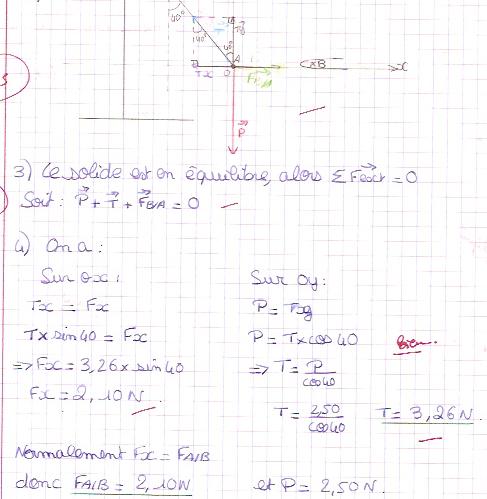 40°
40°
40°
A
Tx O
x
P
3) Le solide est en équilibre, alors ΣFext = 0
Soit : P + T + FB/A = 0
4) On a :
Sur ox :
Tx = Fx
T x sin40 = Fx
=> Fx = 3,26 x sin40
Fx = 2,10N
Sur oy :
P = Ty
P = T x cos 40
Bien.
=> T = P / cos40
T = 2,50 / cos40 T = 3,26N
Normalement Fx = FA/B
donc FA/B = 2,10N et P = 2,50N.